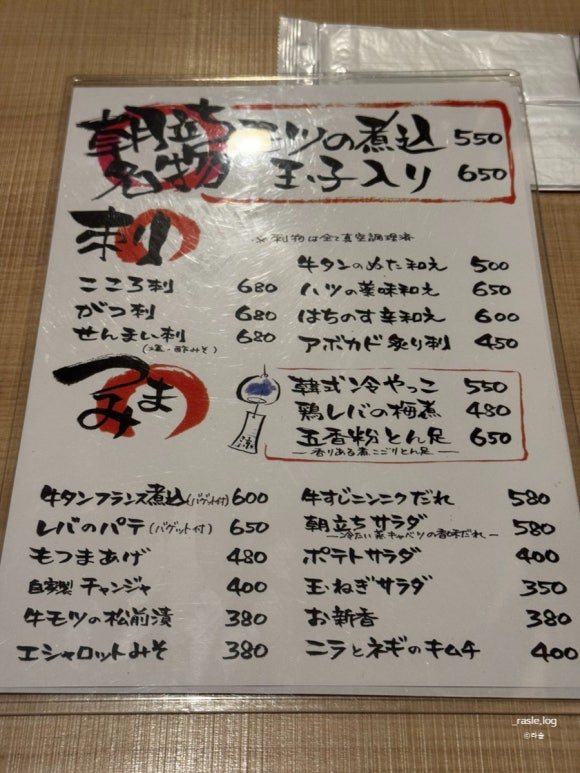 朝立ち名物 モツの煮込 550
玉子入り 650
刺り
※刺物は全て真空調理済
こころ刺 680
がつ刺 680
せんまい刺 680
(塩・酢みそ)
牛タンのぬた和え 500
ハツの薬味和え 650
はちのす辛和え 600
アボカド炙り刺 450
つまみ
涼
韓式冷やっこ 550
鶏レバの梅煮 480
五香粉とん足 650
香りある煮こごりとん足
牛タンフランス煮込(バゲット付) 600
レバのパテ(バゲット付) 650
もつまあげ 480
自家製 チャンジャ 400
牛モツの松前漬 380
エシャロットみそ 380
牛すじニンニクだれ 580
朝立ちサラダ 580
冷たい蒸キャベツの香味だれ
ポテトサラダ 400
玉ねぎサラダ 350
お新香 380
ニラとネギのキムチ 400
_rasle,log
©라슬